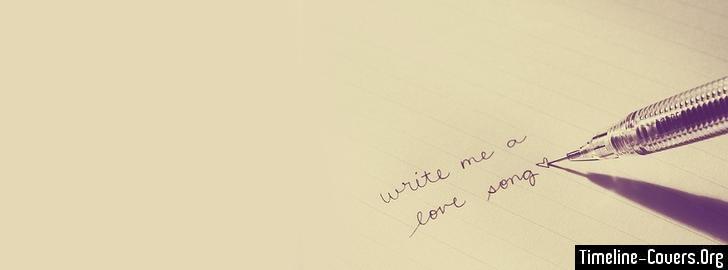 write me a
love song
Timeline-Covers.Org